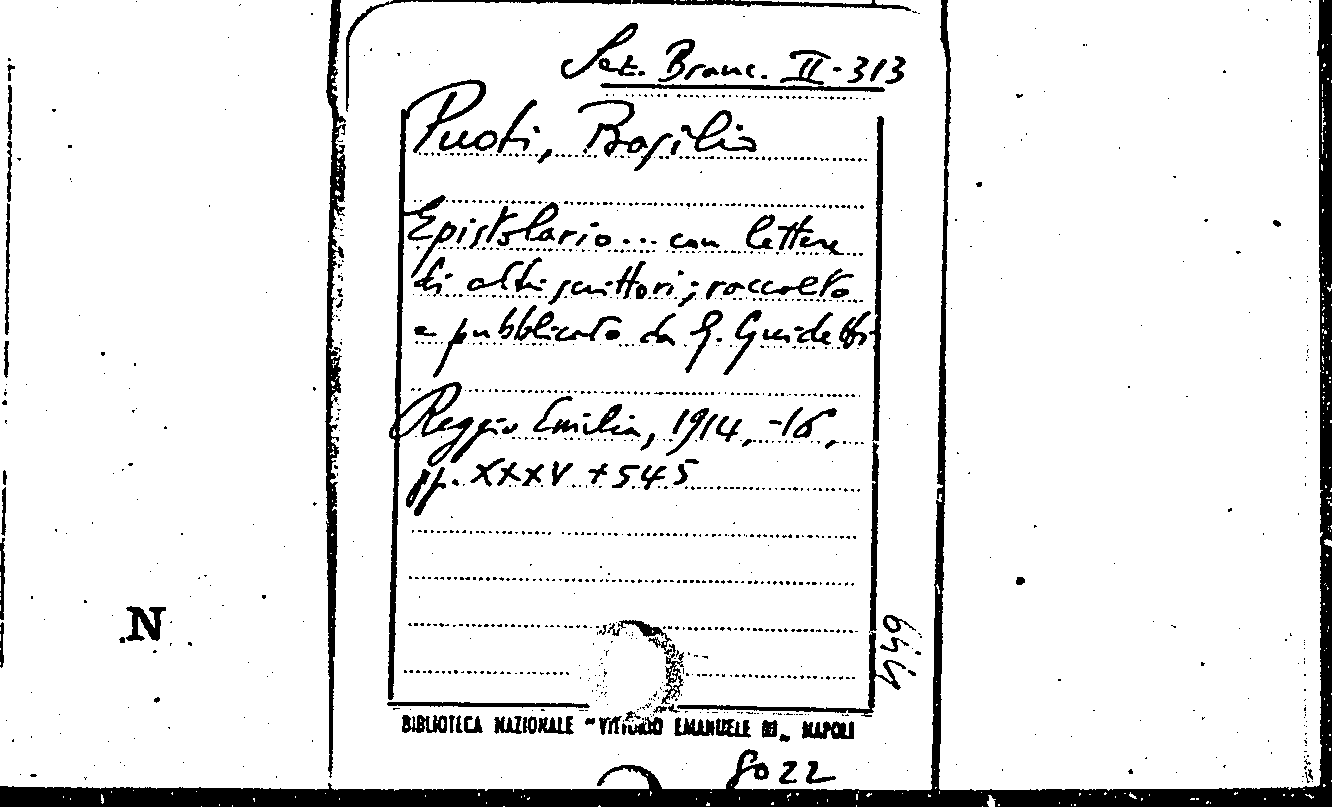 Sez. Branc. II-313
Puoti, Basilio
Epistolario... con lettere
di altri scrittori; raccolto
e pubblicato da G. Guidetti
Reggio Emilia, 1914,-16,
pp. XXXV + 545
N
BIBLIOTECA NAZIONALE "VITTORIO EMANUELE III„ NAPOLI
8022